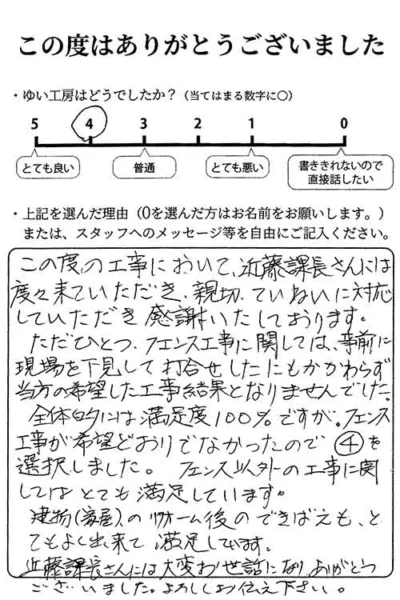 この度はありがとうございました
・ゆい工房はどうでしたか？（当てはまる数字に○）
5 4 3 2 1 0
とても良い 普通 とても悪い 書ききれないので
直接話したい
・上記を選んだ理由（0を選んだ方はお名前をお願いします。）
または、スタッフへのメッセージ等を自由にご記入ください。
この度の工事において、近藤課長さんには
度々来ていただき、親切、ていねいに対応
していただき感謝いたしております。
ただひとつ、フェンス工事に関しては、事前に
現場を下見して打合せしたにもかかわらず
当方の希望した工事結果となりませんでした。
全体的には満足度100%ですが、フェンス
工事が希望どおりでなかったので④を
選択しました。フェンス以外の工事に関
してはとても満足しています。
建物()のリフォーム後のできばえも、と
てもよく出来て満足しています。
近藤課長さんには大変お世話になりありがとう
ございました。よろしくお伝え下さい。